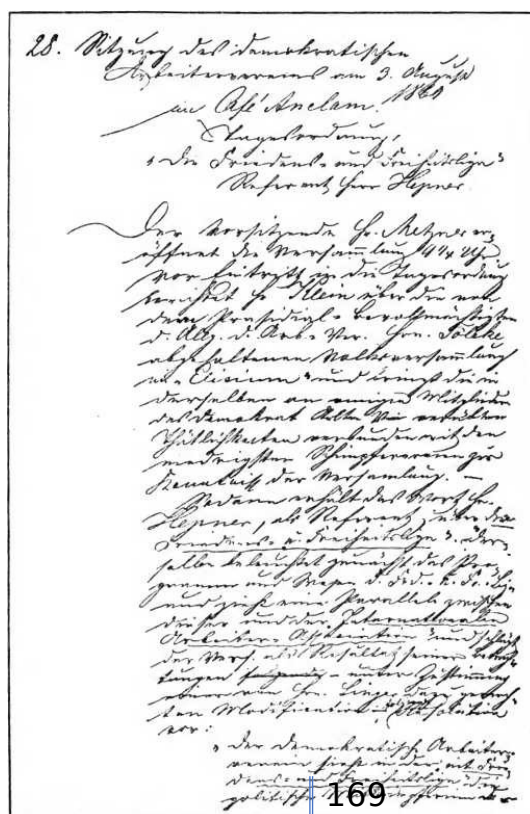 28. Sitzung des demokratischen
Arbeitervereins am 3. August
im Café Anclam. 1869
Tagesordnung:
"Die Friedens- und Freiheitsliga"
Referent Herr Hepner.
Der Vorsitzende Hr. Metzner er-
öffnet die Versammlung 9¼ Uhr
vor Eintritt in die Tagesordnung
berichtet Hr. Klein über die von
dem Präsidial-Bevollmächtigten
d. Allg. d. Arb.-Ver. Hrn. Tölcke
abgehaltenen Volksversammlung
im "Elisium" und bringt die in
derselben an einigen Mitgliedern
des demokrat Arbtr Ver verübten
Thätlichkeiten verbunden mit den
niedrigsten Schimpfereien zur
Kenntniß der Versammlung. —
Sodann erhält das Wort Hr.
Hepner, als Referent, über die
Friedens- u. Freiheitsliga". Der-
selbe beleuchtet zunächst das Pro-
gramm und Wesen d. Frd.- u. Fr. Li-
und zieht eine Parallele zwischen
dieser und der "Internationalen
Arbeiter-Association" und schlägt
der Vers. als Resultat seiner
tungen unter Zustimmung
einer von Hrn. Linger dazu
ten Modification Resolution
vor:
"Der demokratische Arbeiter-
verein sieht in der mit Frie-
dens- und Freiheitsliga" die
politische
169